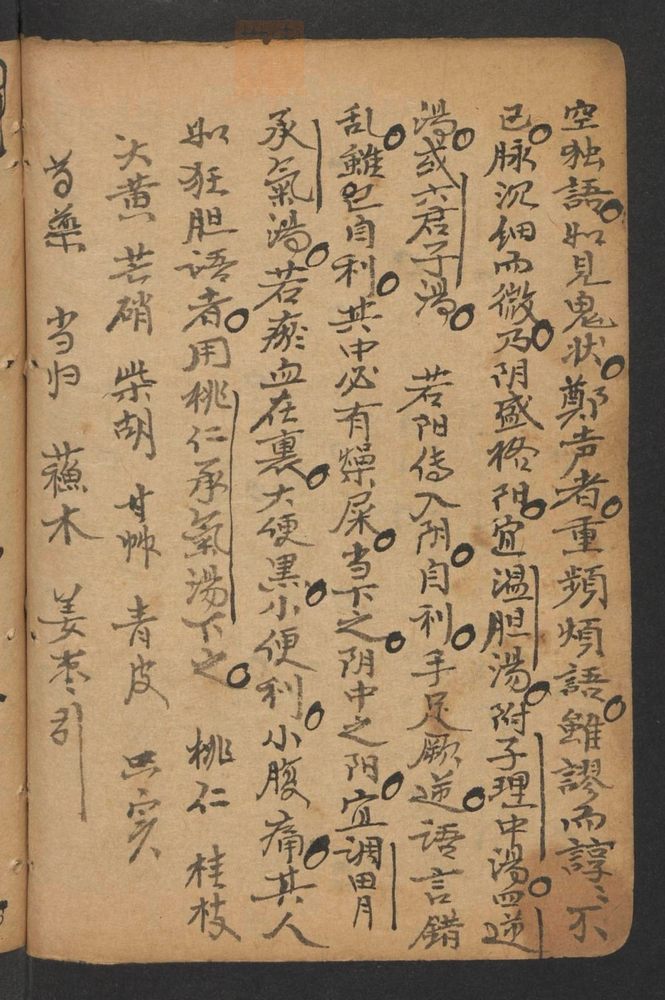 空独語。如見鬼状。鄭声者。重頻煩語。雖謬而諄〻不
已。脉沉細而微。乃阴盛格阳。宜温胆湯。附子理中湯。四逆
湯。或六君子湯。 若阳傳入阴。自利。手足厥逆。語言錯
乱。雖已自利。其中必有燥屎。当下之。阴中之阳。宜調胃
承氣湯。若瘀血在裏。大便黒。小便利。小腹痛。其人
如狂胆语者。用桃仁承氣湯下之。 桃仁 桂枝
大黄 芒硝 柴胡 甘艸 青皮 只实
芍藥 当归 蘓木 姜枣引